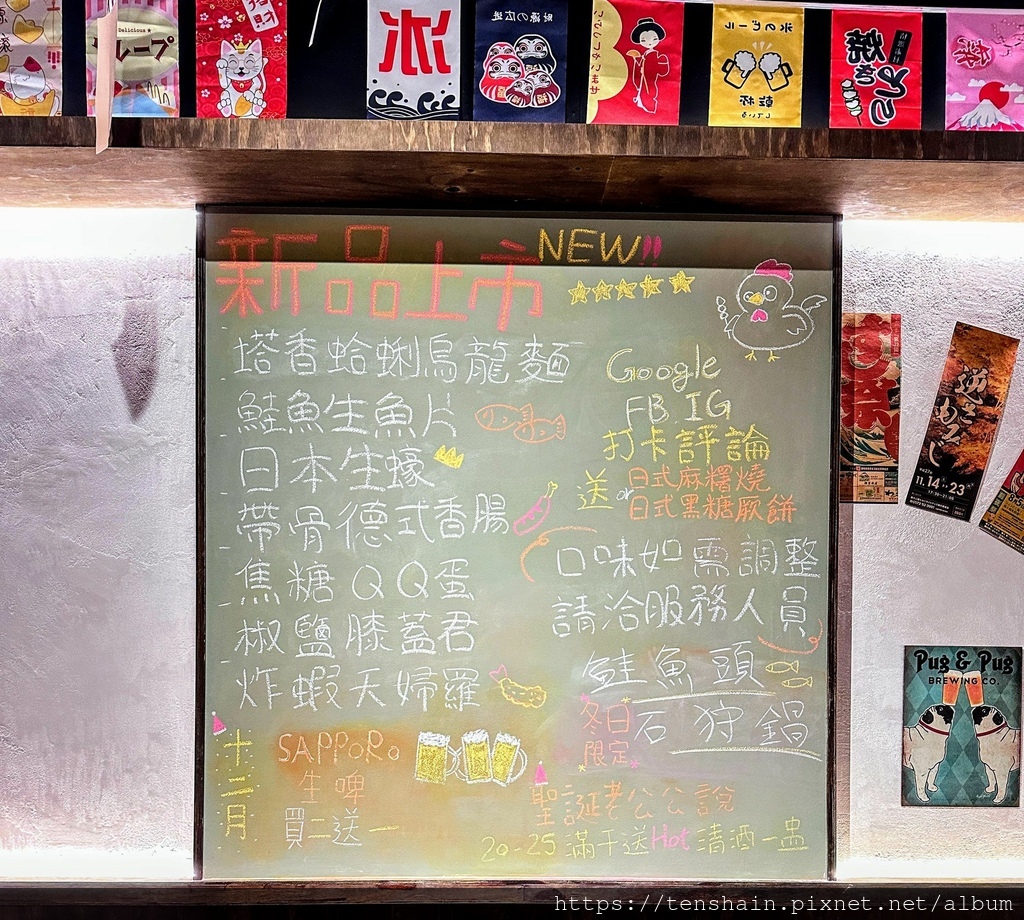 Delicious
レープ
財
氷
財源の広進
氷のビール
乾杯
している
焼きとり
新品上市 NEW!!
塔香蛤蜊烏龍麵
鮭魚生魚片
日本生蠔
帶骨德式香腸
焦糖QQ蛋
椒鹽膝蓋君
炸蝦天婦羅
十二月
SAPPORO
生啤
買二送一
Google
FB IG
打卡評論
送 日式麻糬燒
or 日式黑糖蕨餅
口味如需調整
請洽服務人員
鮭魚頭
冬日限定 石狩鍋
聖誕老公公說
20-25 滿千送Hot清酒一盅
逆さもみじ
11.14 23
Pug & Pug
BREWING CO.
https://tenshain.pixnet.net/album